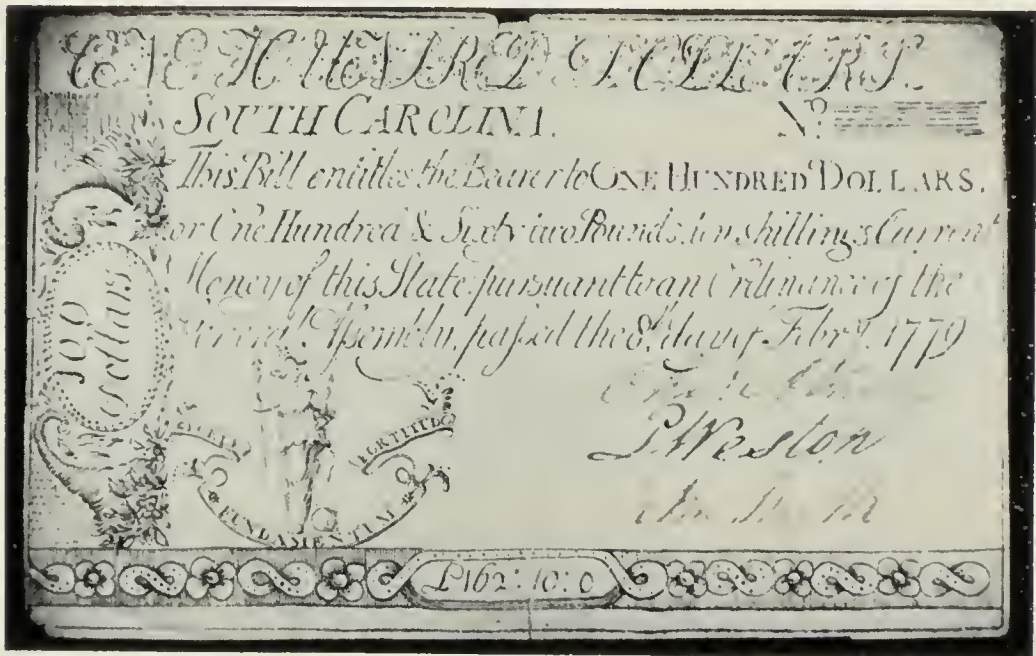 ONE HUNDRED DOLLARS.
SOUTH CAROLINA. No.
This Bill entitles the Bearer to ONE HUNDRED DOLLARS.
or One Hundred & Sixty two Pounds, ten shillings Current
Money of this State pursuant to an Ordinance of the
General Assembly, passed the 8th day of Febry. 1779
100
dollars
P. Weston
FORTITUD
FUNDAMENTUM
£162:10:0